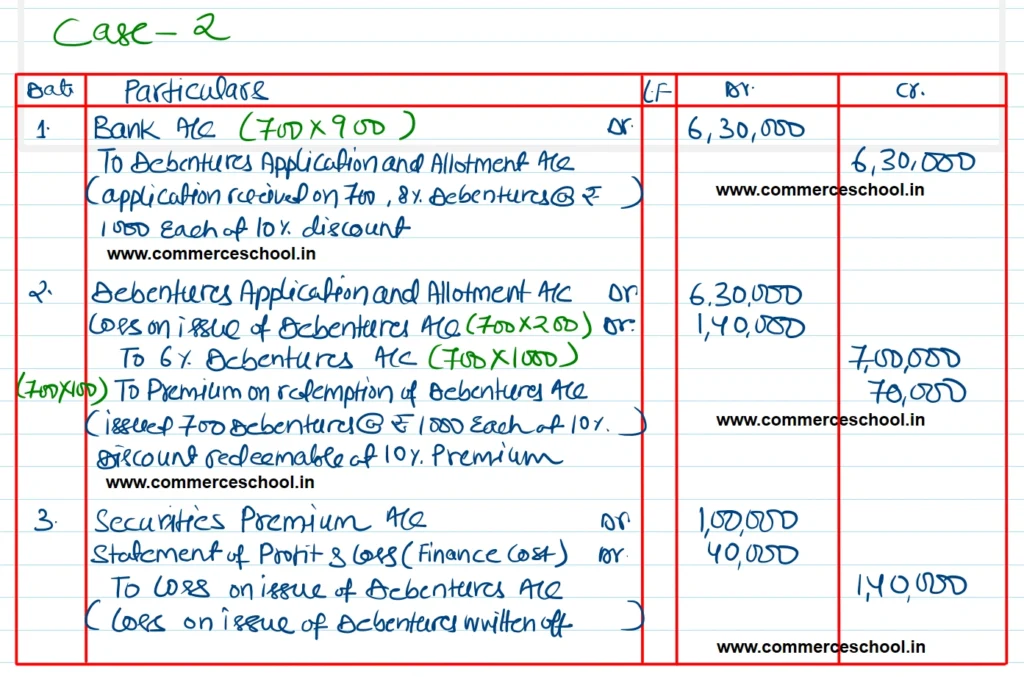 Case - 2
Date Particulars L.F Dr. Cr.
1. Bank A/c (700 x 900) Dr. 6,30,000
To Debentures Application and Allotment A/c 6,30,000
(application received on 700, 8% Debentures @ ₹ )
1000 Each at 10% discount
www.commerceschool.in
www.commerceschool.in
2. Debentures Application and Allotment A/c Dr 6,30,000
Loss on issue of Debentures A/c (700 x 200) Dr. 1,40,000
To 6% Debentures A/c (700 x 1000) 7,00,000
(700x100) To Premium on redemption of Debentures A/c 70,000
(issued 700 Debentures @ ₹ 1000 Each at 10%. )
www.commerceschool.in
Discount redeemable at 10% Premium
www.commerceschool.in
3. Securities Premium A/c Dr 1,00,000
Statement of Profit & Loss (Finance Cost) Dr. 40,000
To Loss on issue of Debentures A/c 1,40,000
( Loss on issue of Debentures written off )
www.commerceschool.in